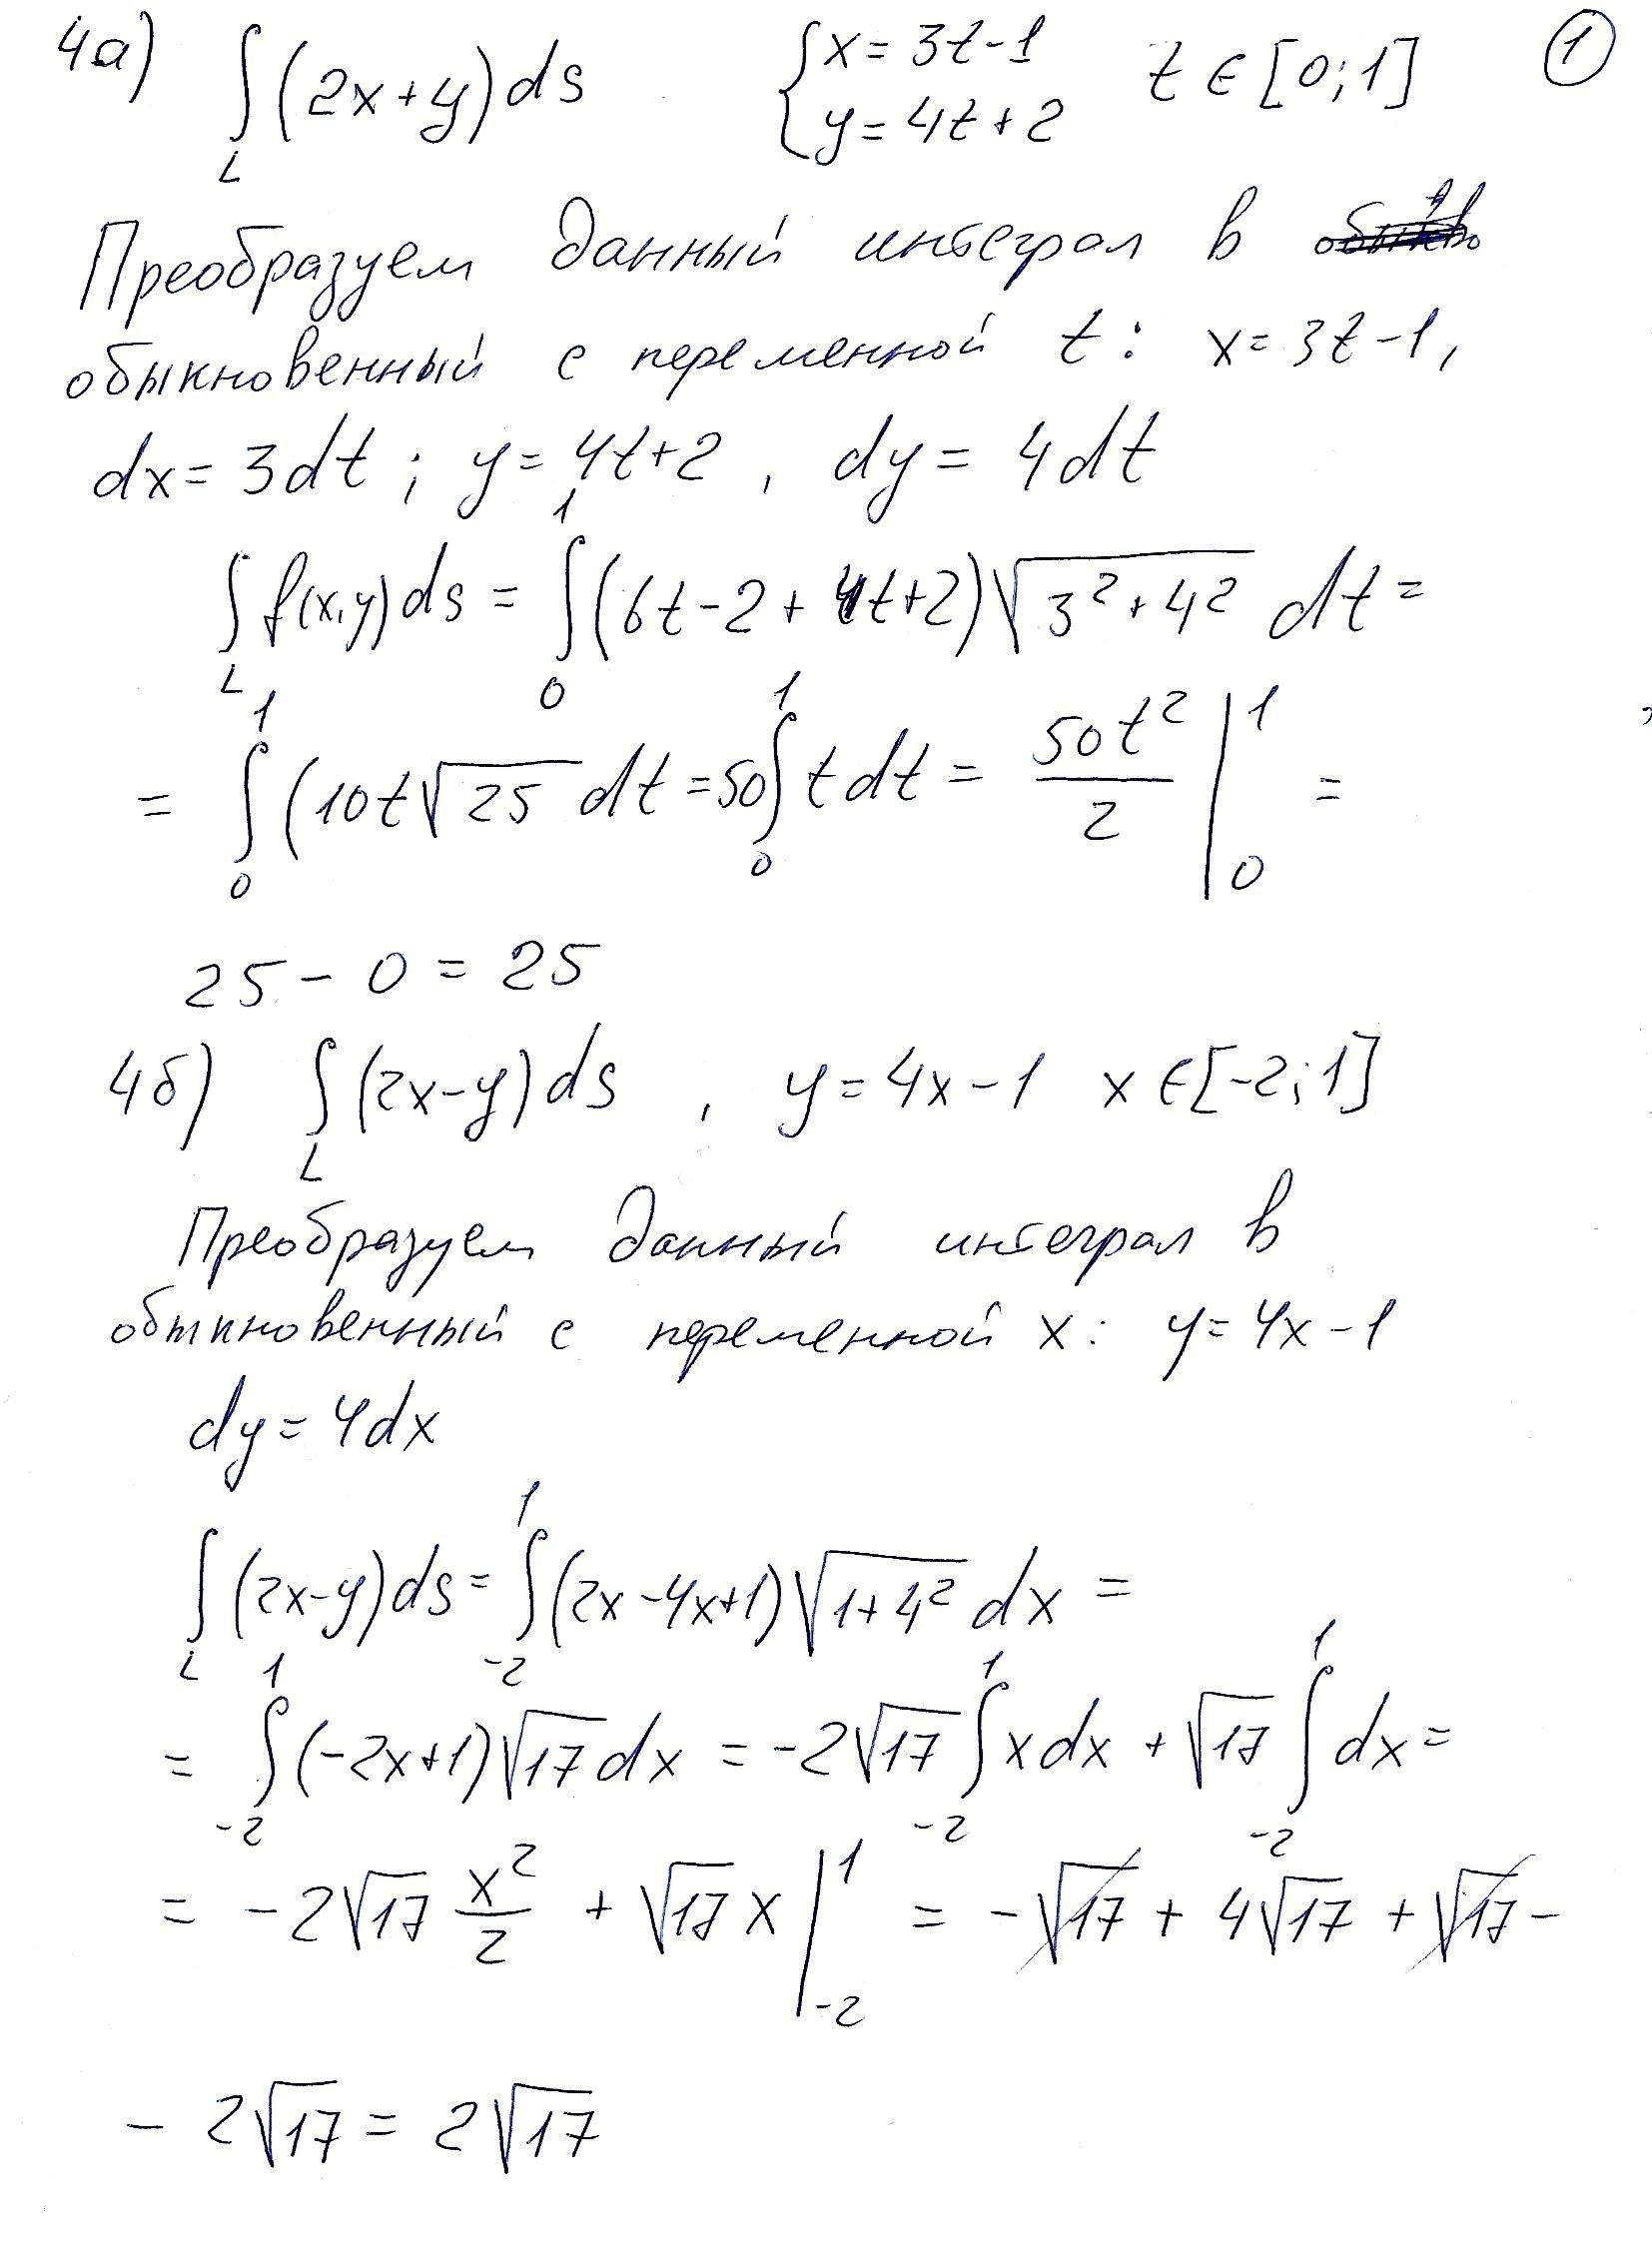 4а) ∫_L (2x+y)ds {x = 3t-1 y = 4t+2 t ∈ [0;1] ①
Преобразуем данный интеграл в
обыкновенный с переменной t: x = 3t-1,
dx = 3dt; y = 4t+2, dy = 4dt
∫_L f(x,y)ds = ∫_0^1 (6t-2+4t+2)√(3²+4²) dt =
= ∫_0^1 (10t√25 dt = 50∫_0^1 t dt = 50t²/2 |_0^1 =
25 - 0 = 25
4б) ∫_L (2x-y)ds, y = 4x-1 x ∈ [-2;1]
Преобразуем данный интеграл в
обыкновенный с переменной x: y = 4x-1
dy = 4dx
∫_L (2x-y)ds = ∫_-2^1 (2x-4x+1)√(1+4²) dx =
= ∫_-2^1 (-2x+1)√17 dx = -2√17 ∫_-2^1 x dx + √17 ∫_-2^1 dx =
= -2√17 x²/2 + √17 x |_-2^1 = -√17 + 4√17 + √17 -
- 2√17 = 2√17